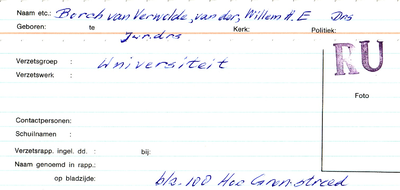 Naam etc.: Borch van Verwolde, van der, Willem H. E Drs
Geboren: te Kerk: Politiek:
Jur. drs
RU
Verzetsgroep : Universiteit
Verzetswerk :
Foto
Contactpersonen:
Schuilnamen :
Verzetsrapp. ingel. dd. : bij:
Naam genoemd in rapp.:
op bladzijde: blz. 100 Hoe Gron. streed